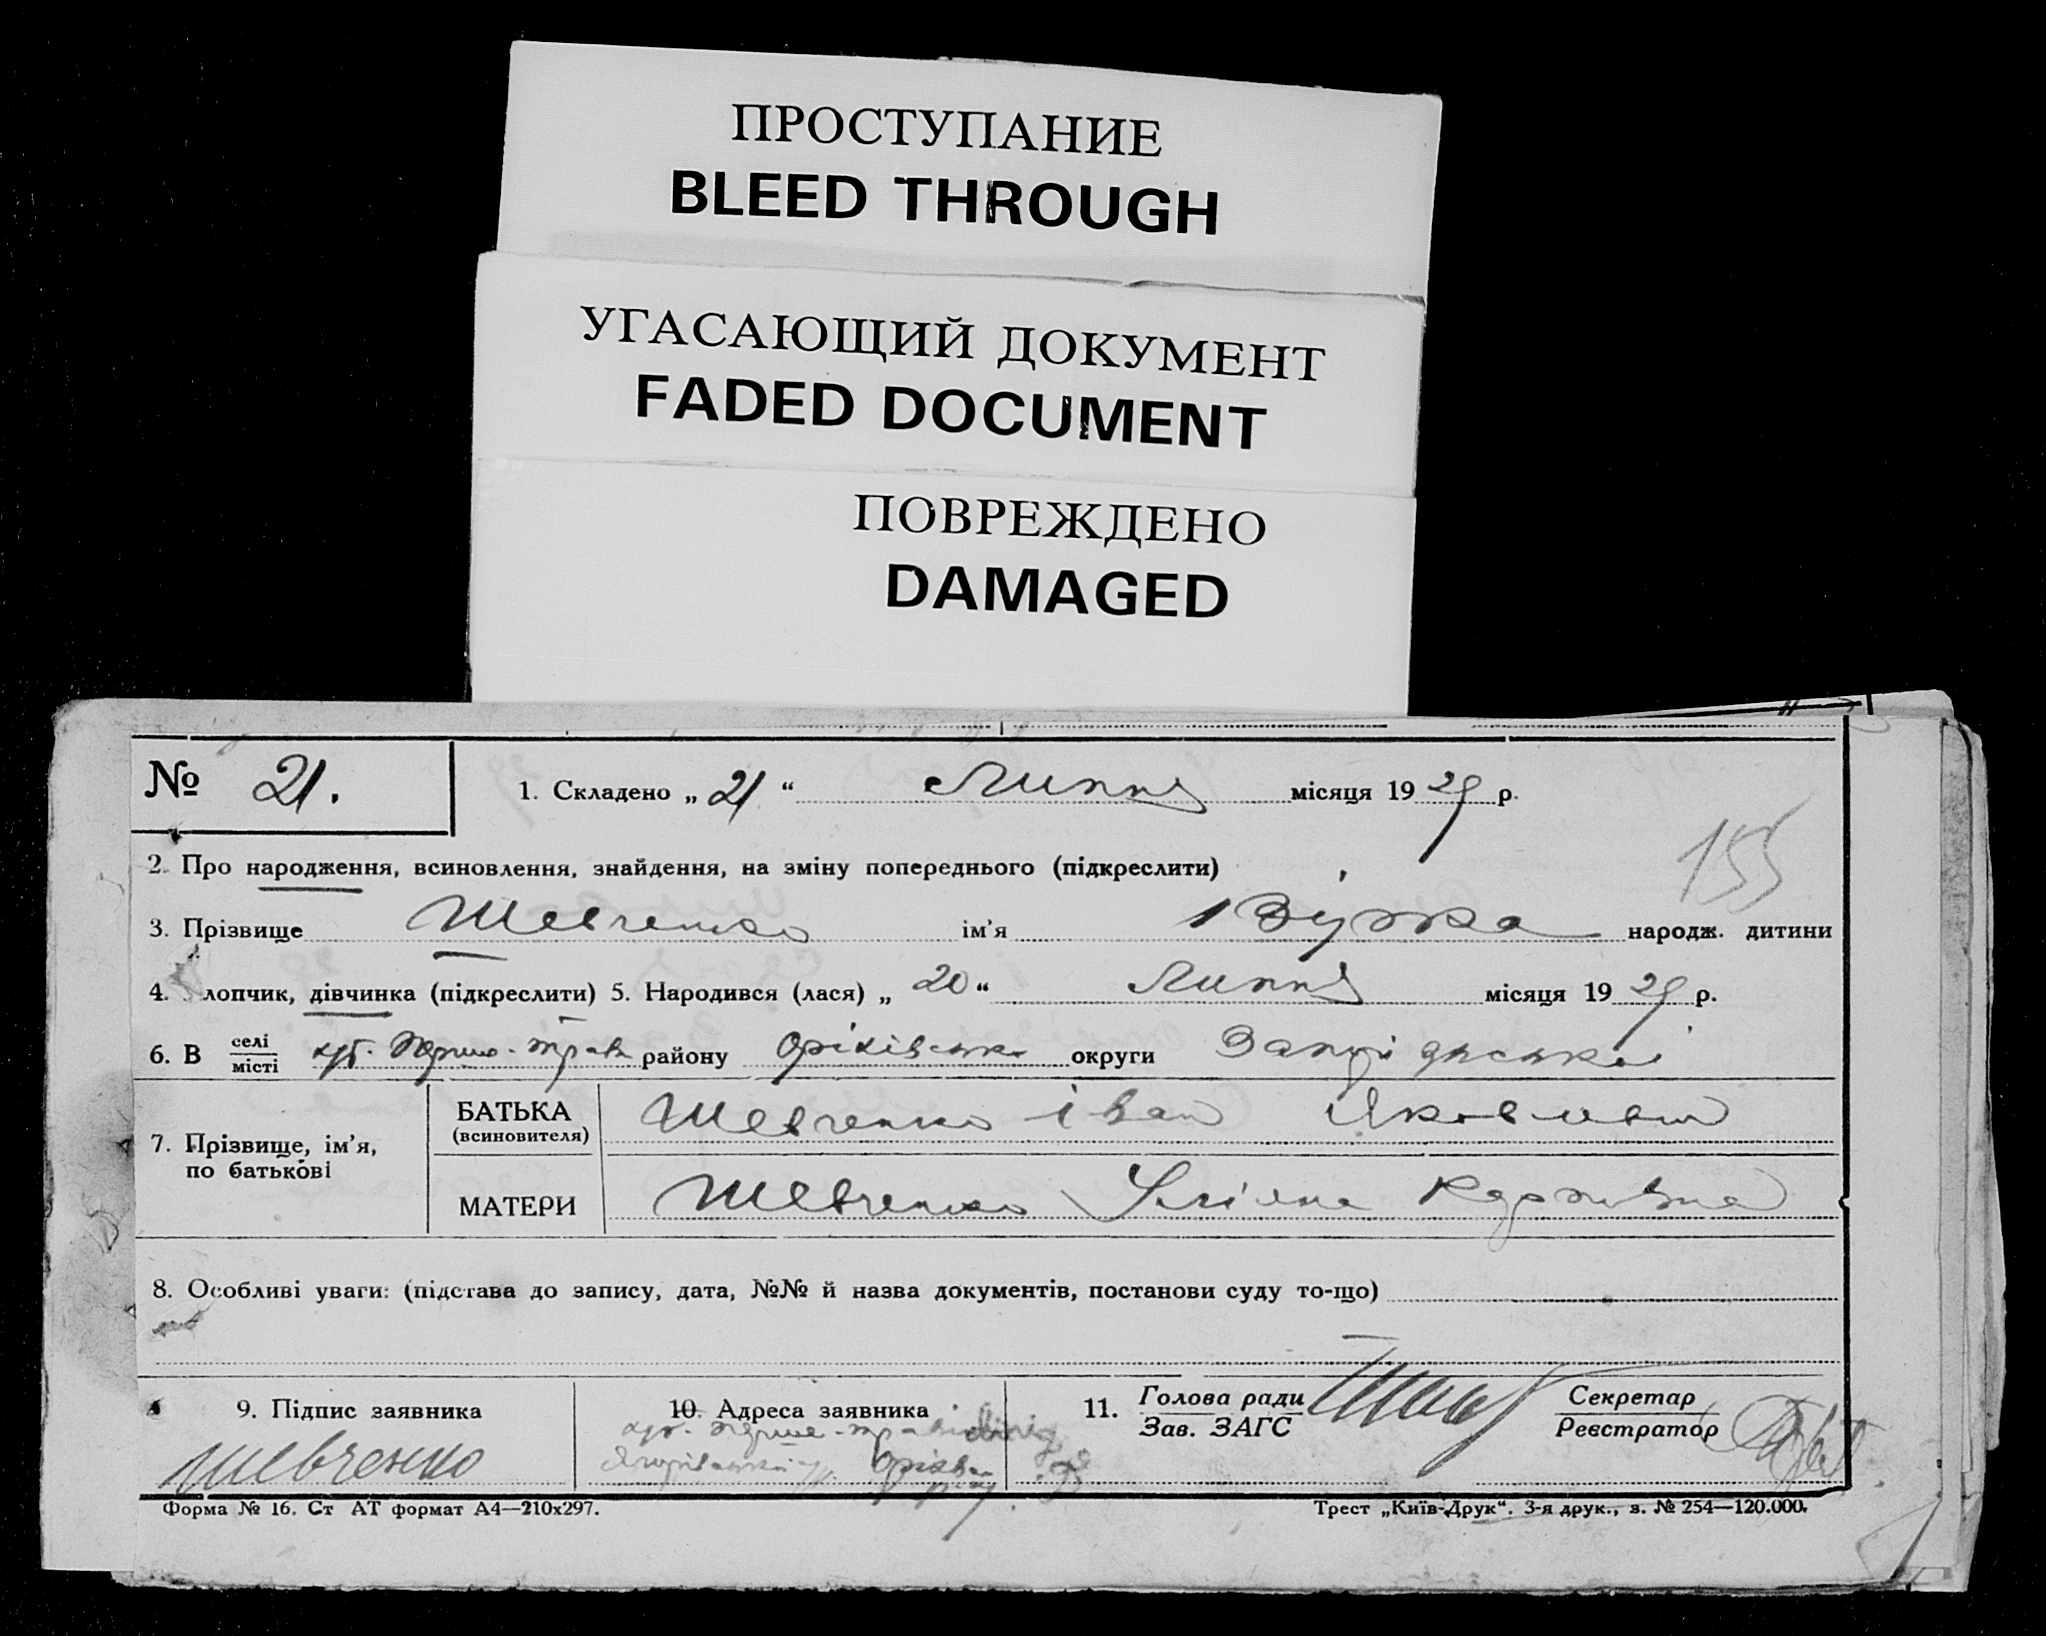 ПРОСТУПАНИЕ
BLEED THROUGH
УГАСАЮЩИЙ ДОКУМЕНТ
FADED DOCUMENT
ПОВРЕЖДЕНО
DAMAGED
№ 21. 1. Складено „ 21 “ Липня місяця 19 29 р.
155
2. Про народження, всиновлення, знайдення, на зміну попереднього (підкреслити)
3. Прізвище Шевченко ім'я народж. дитини
4. лопчик, дівчинка (підкреслити) 5. Народився (лася) „ 20 “ Липня місяця 19 29 р.
6. В селі/місті району Оріхівськ округи
7. Прізвище, ім'я, по батькові
БАТЬКА (всиновителя) Шевченко Іван Яковлевич
МАТЕРИ Шевченко
8. Особливі уваги: (підстава до запису, дата, №№ й назва документів, постанови суду то-що)
9. Підпис заявника 10. Адреса заявника 11. Голова ради/Зав. ЗАГС Секретар/Реєстратор
Шевченко
Форма № 16. Ст АТ формат А4—210х297. Трест „Київ-Друк“. 3-я друк., з. № 254—120.000.